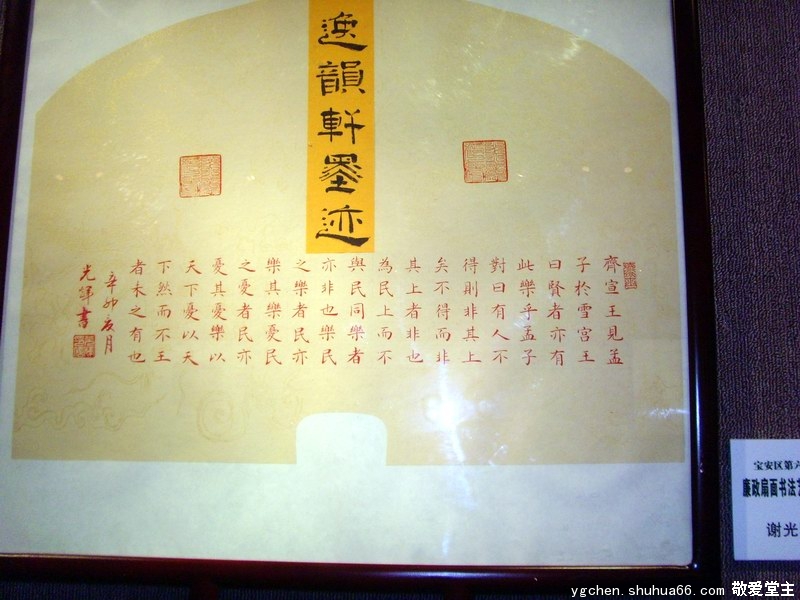 逸韻軒墨迹
齊宣王見孟
子於雪宮王
曰賢者亦有
此樂乎孟子
對曰有人不
得則非其上
矣不得而非
其上者非也
為民上而不
與民同樂者
亦非也樂民
之樂者民亦
樂其樂憂民
之憂者民亦
憂其憂樂以
天下憂以天
下然而不王
者未之有也
辛卯夏月
光輝書
宝安区第六
廉政扇面书法艺
谢光
ygchen.shuhua66.com 敬爱堂主